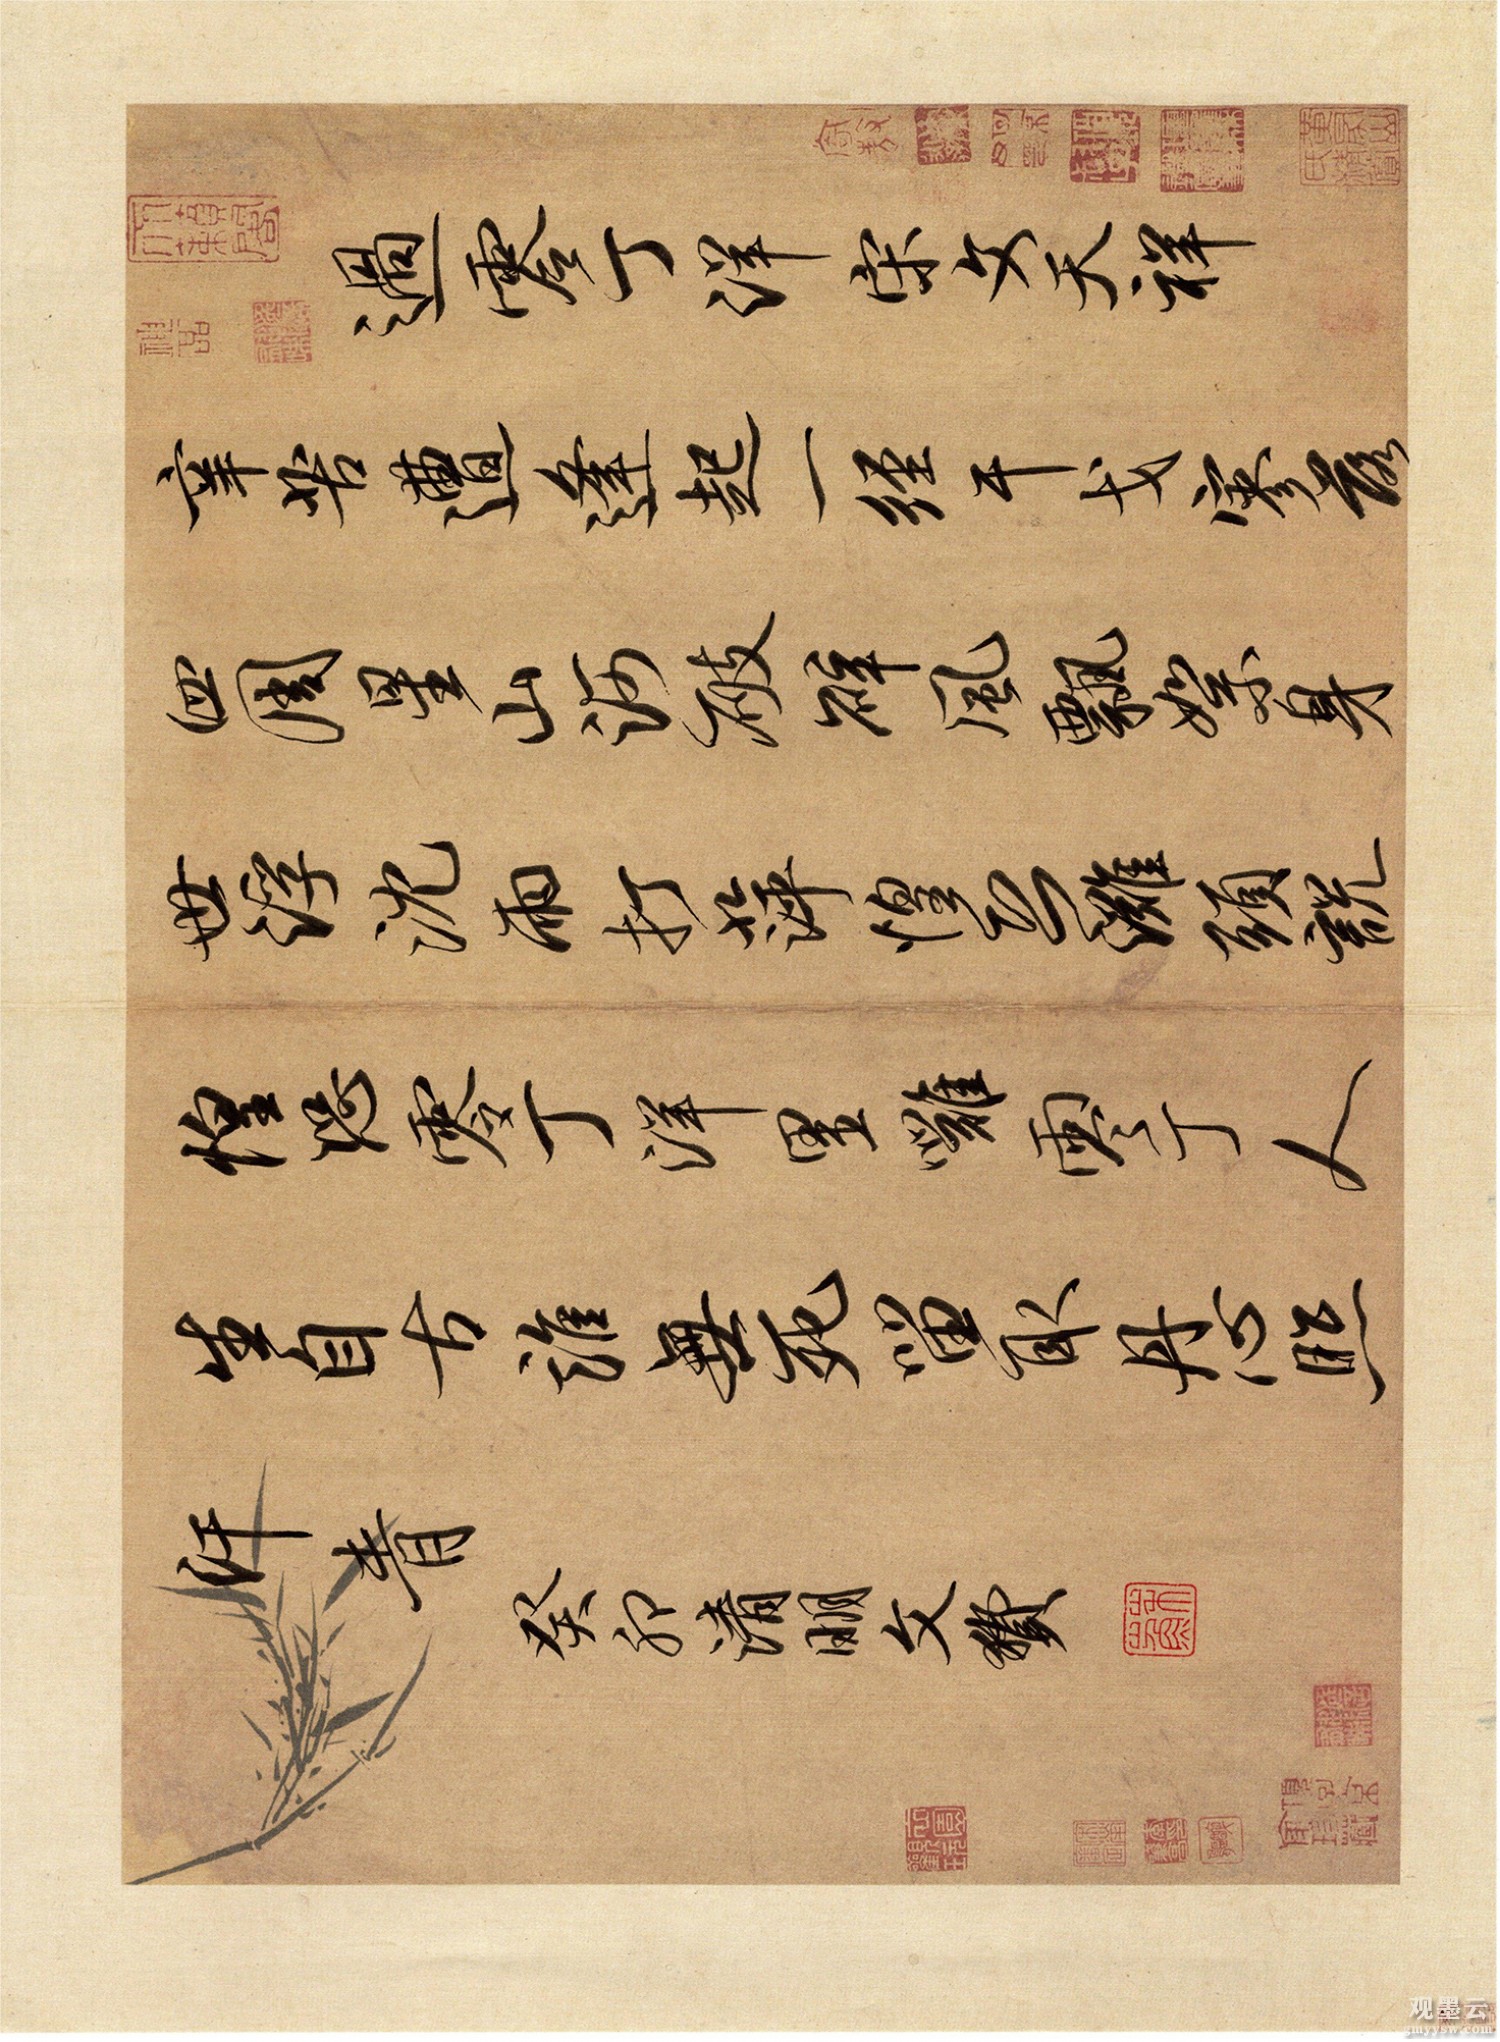 過零丁洋 宋文天祥
辛苦遭逢起一經干戈寥落
四周星山河破碎風飄絮身
世浮沉雨打萍惶恐灘頭說
惶恐零丁洋里嘆零丁人
生自古誰無死留取丹心照
汗青
癸卯清明文
观墨云
gmyysw.com